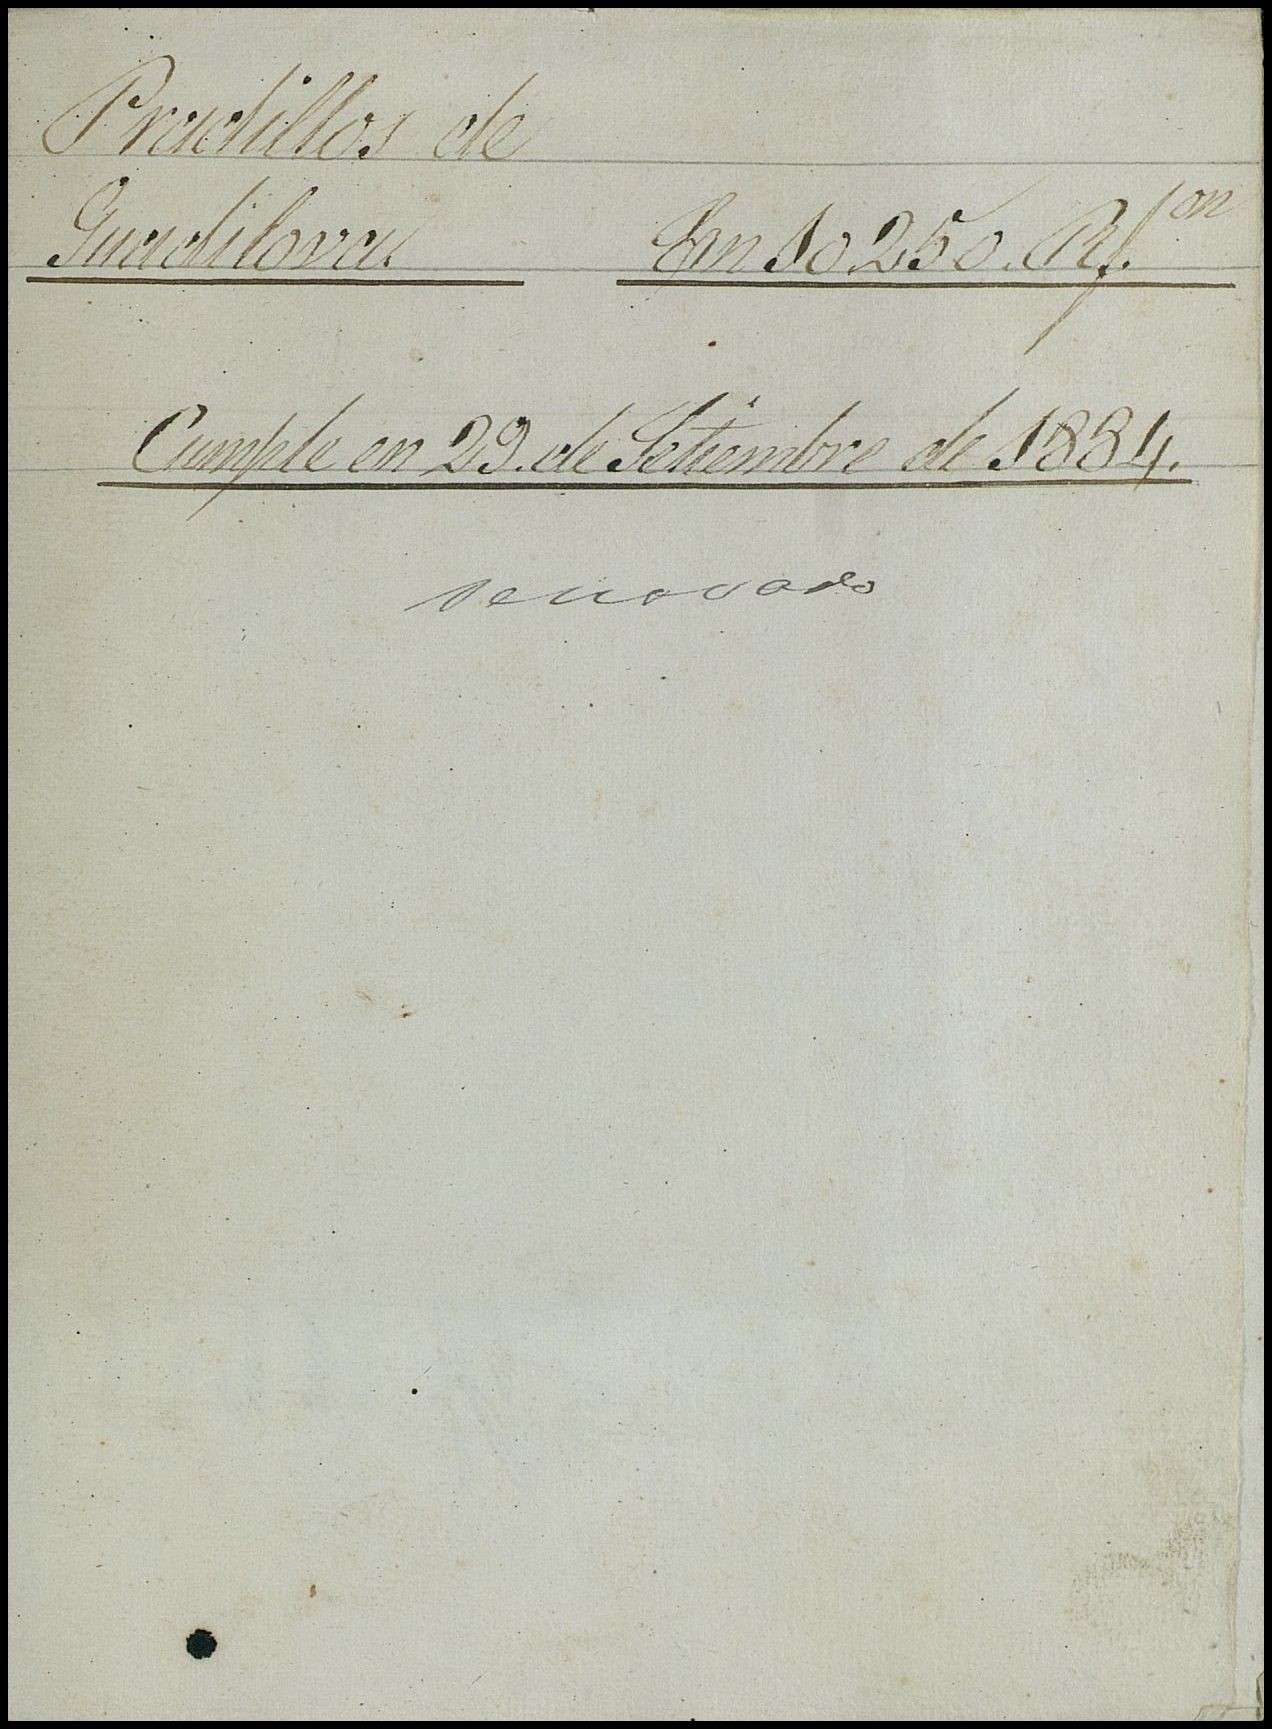 Pradillos de
Guadilova. En 10.250. Rs. on
Cumple en 29. de Setiembre de 1884.
renovado